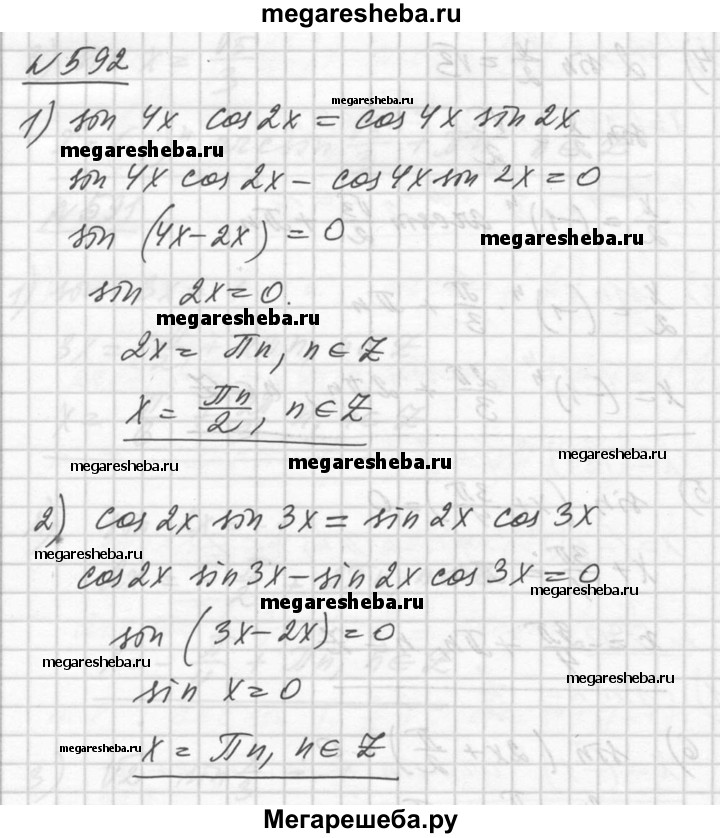 megaresheba.ru
N592
1) sin 4x cos 2x = cos 4x sin 2x
megaresheba.ru
megaresheba.ru
sin 4x cos 2x - cos 4x sin 2x = 0
sin (4x-2x) = 0
megaresheba.ru
sin 2x=0.
megaresheba.ru
2x= Пn, n∈Z
x = Пn/2, n∈Z
megaresheba.ru
megaresheba.ru
megaresheba.ru
2) cos 2x sin 3x = sin 2x cos 3x
megaresheba.ru
cos 2x sin 3x - sin 2x cos 3x = 0
megaresheba.ru
megaresheba.ru
sin (3x-2x) = 0
megaresheba.ru
megaresheba.ru
sin x=0
x = Пn, n∈Z
megaresheba.ru
megaresheba.ru
Мегарешеба.ру